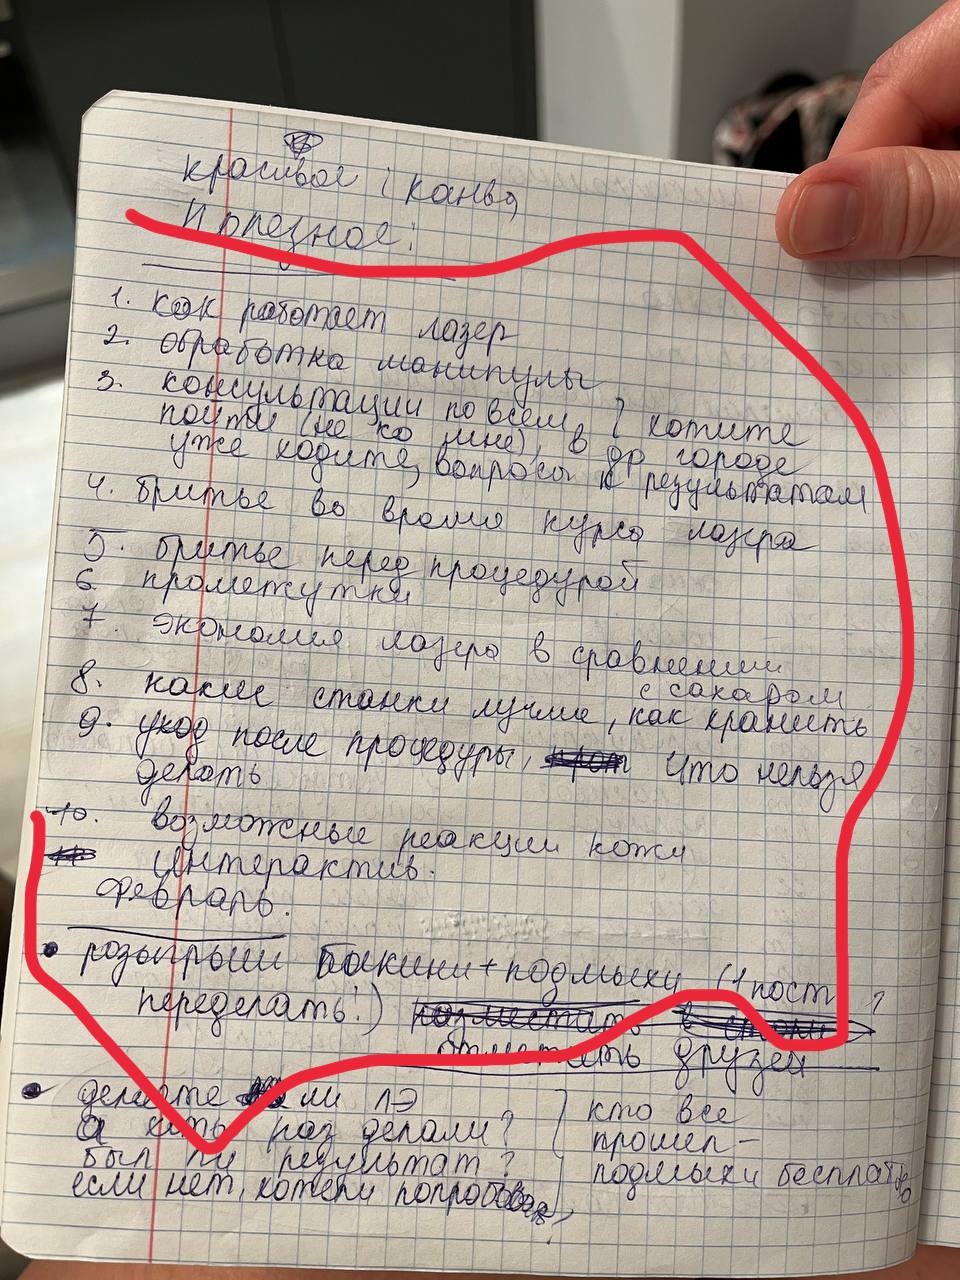 красивое : канва
Полезное:
1. как работает лазер
2. обработка манипулы
3. консультации по всем, ? хотите
пойти (не ко мне), в др городе
уже ходите, вопросы к результатам
4. бритье во время курса лазера
5. бритье перед процедурой
6 промежутки
7. экономия лазера в сравнении
с сахаром
8. какие станки лучше, как хранить
9. уход после процедуры, что нельзя
делать
10. возможные реакции кожи
Интерактив.
Февраль.
• розыгрыш бикини+подмыхи (1 пост ?
переделать!) разместить в сторис
отметить друзей
• делаете ли ЛЭ
а хоть раз делали?
был ли результат?
если нет, хотели попробовать?
кто все
прошел –
подмыхи бесплатно